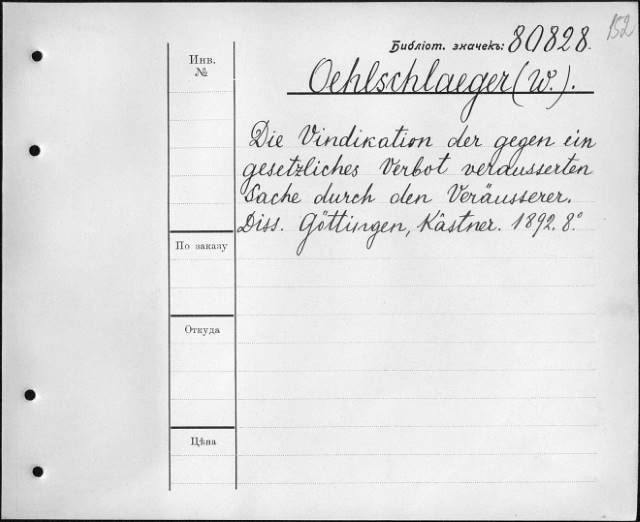 152
Библіот. значекъ: 80828.
Инв.
№
Oehlschlaeger (W.).
Die Vindikation der gegen ein
gesetzliches Verbot verausserten
Sache durch den Veräusserer.
Diss. Göttingen, Kästner. 1892. 8.°
По заказу
Откуда
Цѣна